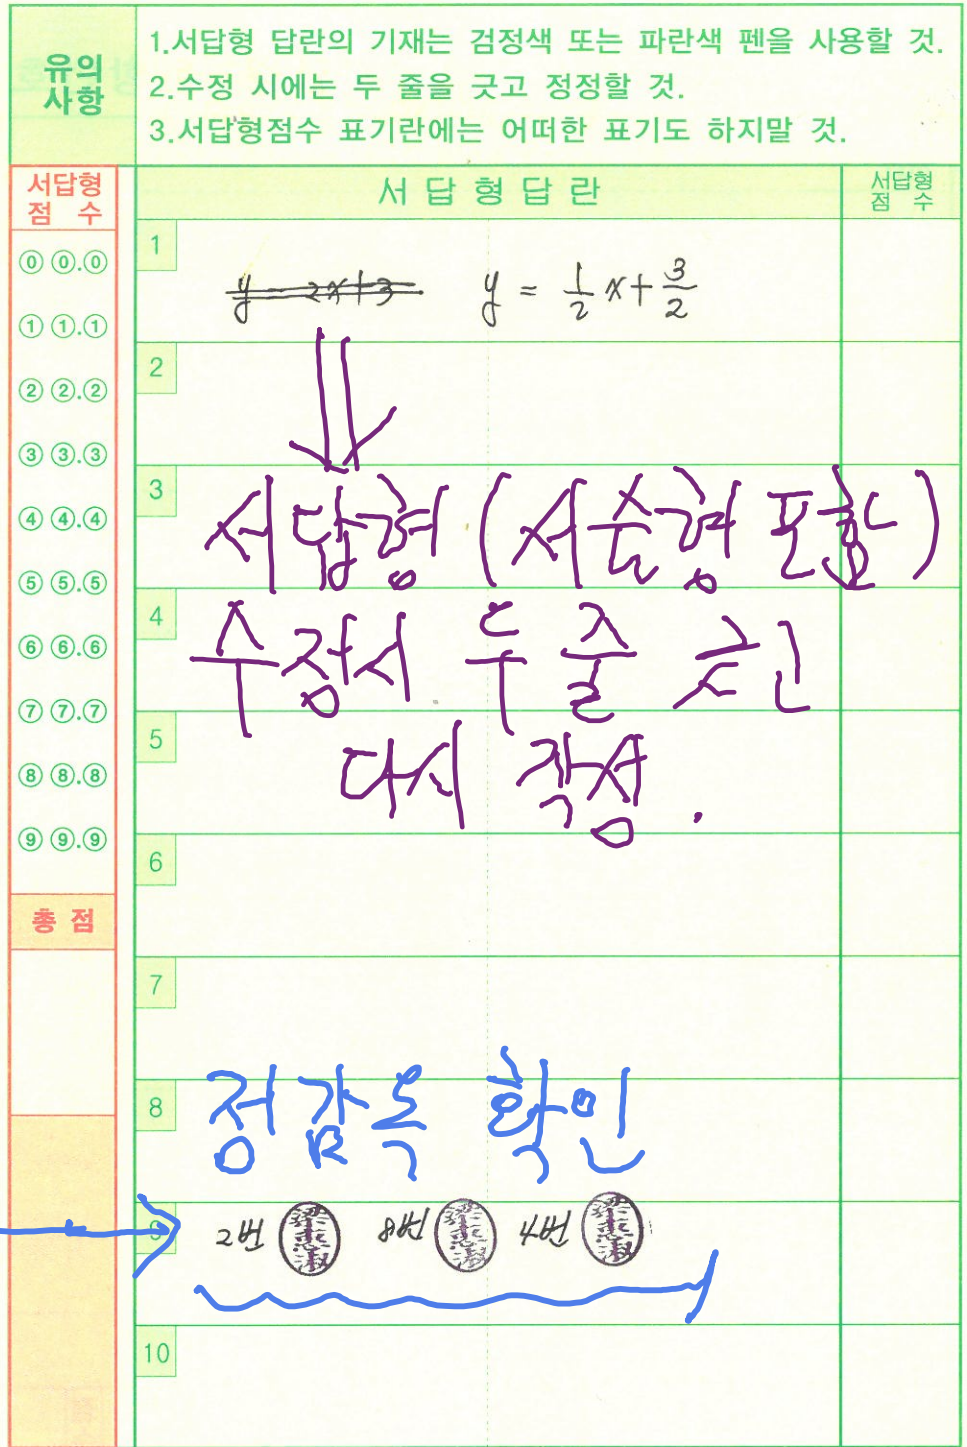 유의
사항
1.서답형 답란의 기재는 검정색 또는 파란색 펜을 사용할 것.
2.수정 시에는 두 줄을 긋고 정정할 것.
3.서답형점수 표기란에는 어떠한 표기도 하지말 것.
서답형
점 수
서 답 형 답 란
서답형
점 수
⓪ ⓪.⓪
① ①.①
② ②.②
③ ③.③
④ ④.④
⑤ ⑤.⑤
⑥ ⑥.⑥
⑦ ⑦.⑦
⑧ ⑧.⑧
⑨ ⑨.⑨
총 점
1
y = 2x+3 y = 1/2 x + 3/2
2
3
서답형 (서술형 포함)
4
수정시 두줄 긋고
5
다시 작성.
6
7
8
정감독 확인
9
2번 8번 4번
10